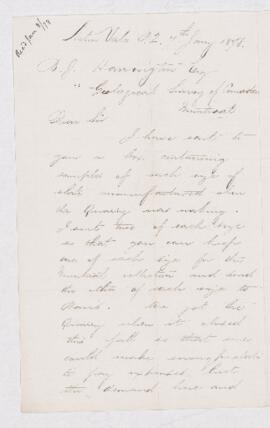 Recd Jan 8/78
4th Jany 1878.
B. J. Harrington Esq
Geological Survey of Canada
Montreal
Dear Sir
I have sent to
you a box containing
samples of each size of
slate manufactured when
the Quarry was working.
I sent two of each size
so that you can keep
one of each size for the
Montreal collection and send
the other of each size to
Paris. We got the
Quarry when it closed
this fall so that we
could make enough slate
to pay expenses, but
the demand here and